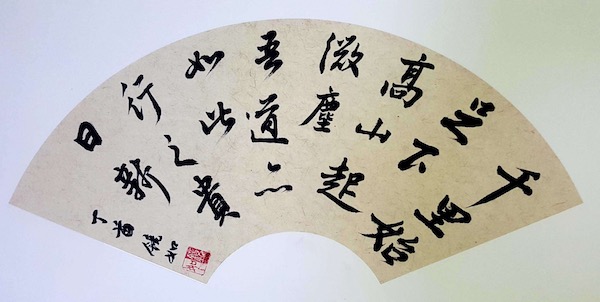 千里始
足下
高山起
微塵
吾道亦
如此
行之貴
日新
丁酉健如